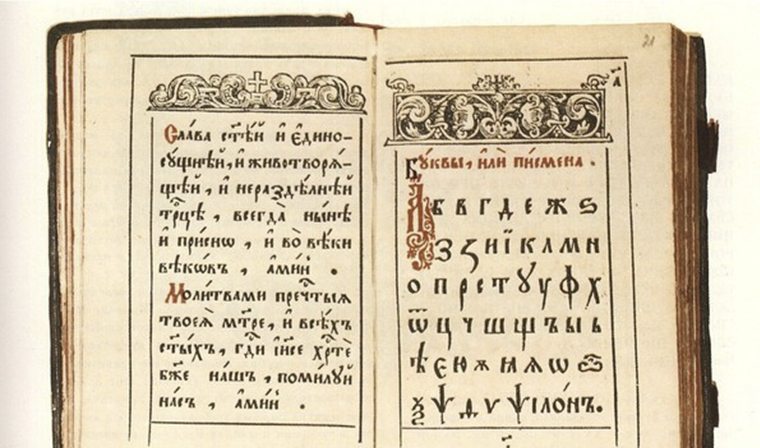 Сла́ва ст҃ѣ́й и҆ є҆дино-
су́щнѣй, и҆ животворѧ́-
щѣй, и҆ нераздѣ́лнѣй
трⷪ҇цѣ, всегда̀ ны́нѣ
и҆ при́снѡ, и҆ во вѣ́ки
вѣкѡ́въ, а҆ми́нь.
Мол҃и́твами пречⷭ҇тыѧ
твоеѧ̀ мт҃ре, и҆ всѣ́хъ
ст҃ы́хъ, гдⷭ҇и і҆и҃се хрⷭ҇тѐ
бж҃е на́шъ, поми́луй
на́съ, а҆ми́нь.
21
а҃
Бꙋ́квы, и҆лѝ пи́смена.
А Б В Г Д Е Ж Ѕ
З И Ї К Л М Н
О П Р С Т Ꙋ У Ф Х
Ѿ Ц Ч Ш Щ Ъ Ы Ь
Ѣ Є Ю Ѫ Ѧ Ѡ
Ѯ Ѱ Ѵ Ѱі́лонъ.